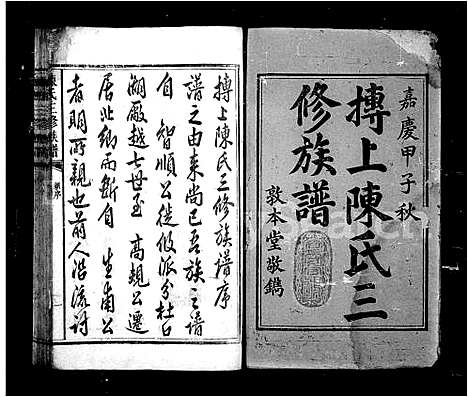 嘉慶甲子秋
摶上陳氏三
修族譜
敦本堂敬鐫
摶上陳氏三修族譜序
譜之由来尚已吾族之譜
自 智順公徒攸派分杜公
溯厥越七世至 高規公遷
居此鄉而斷自 生甫公
者明所親也前人沿流討